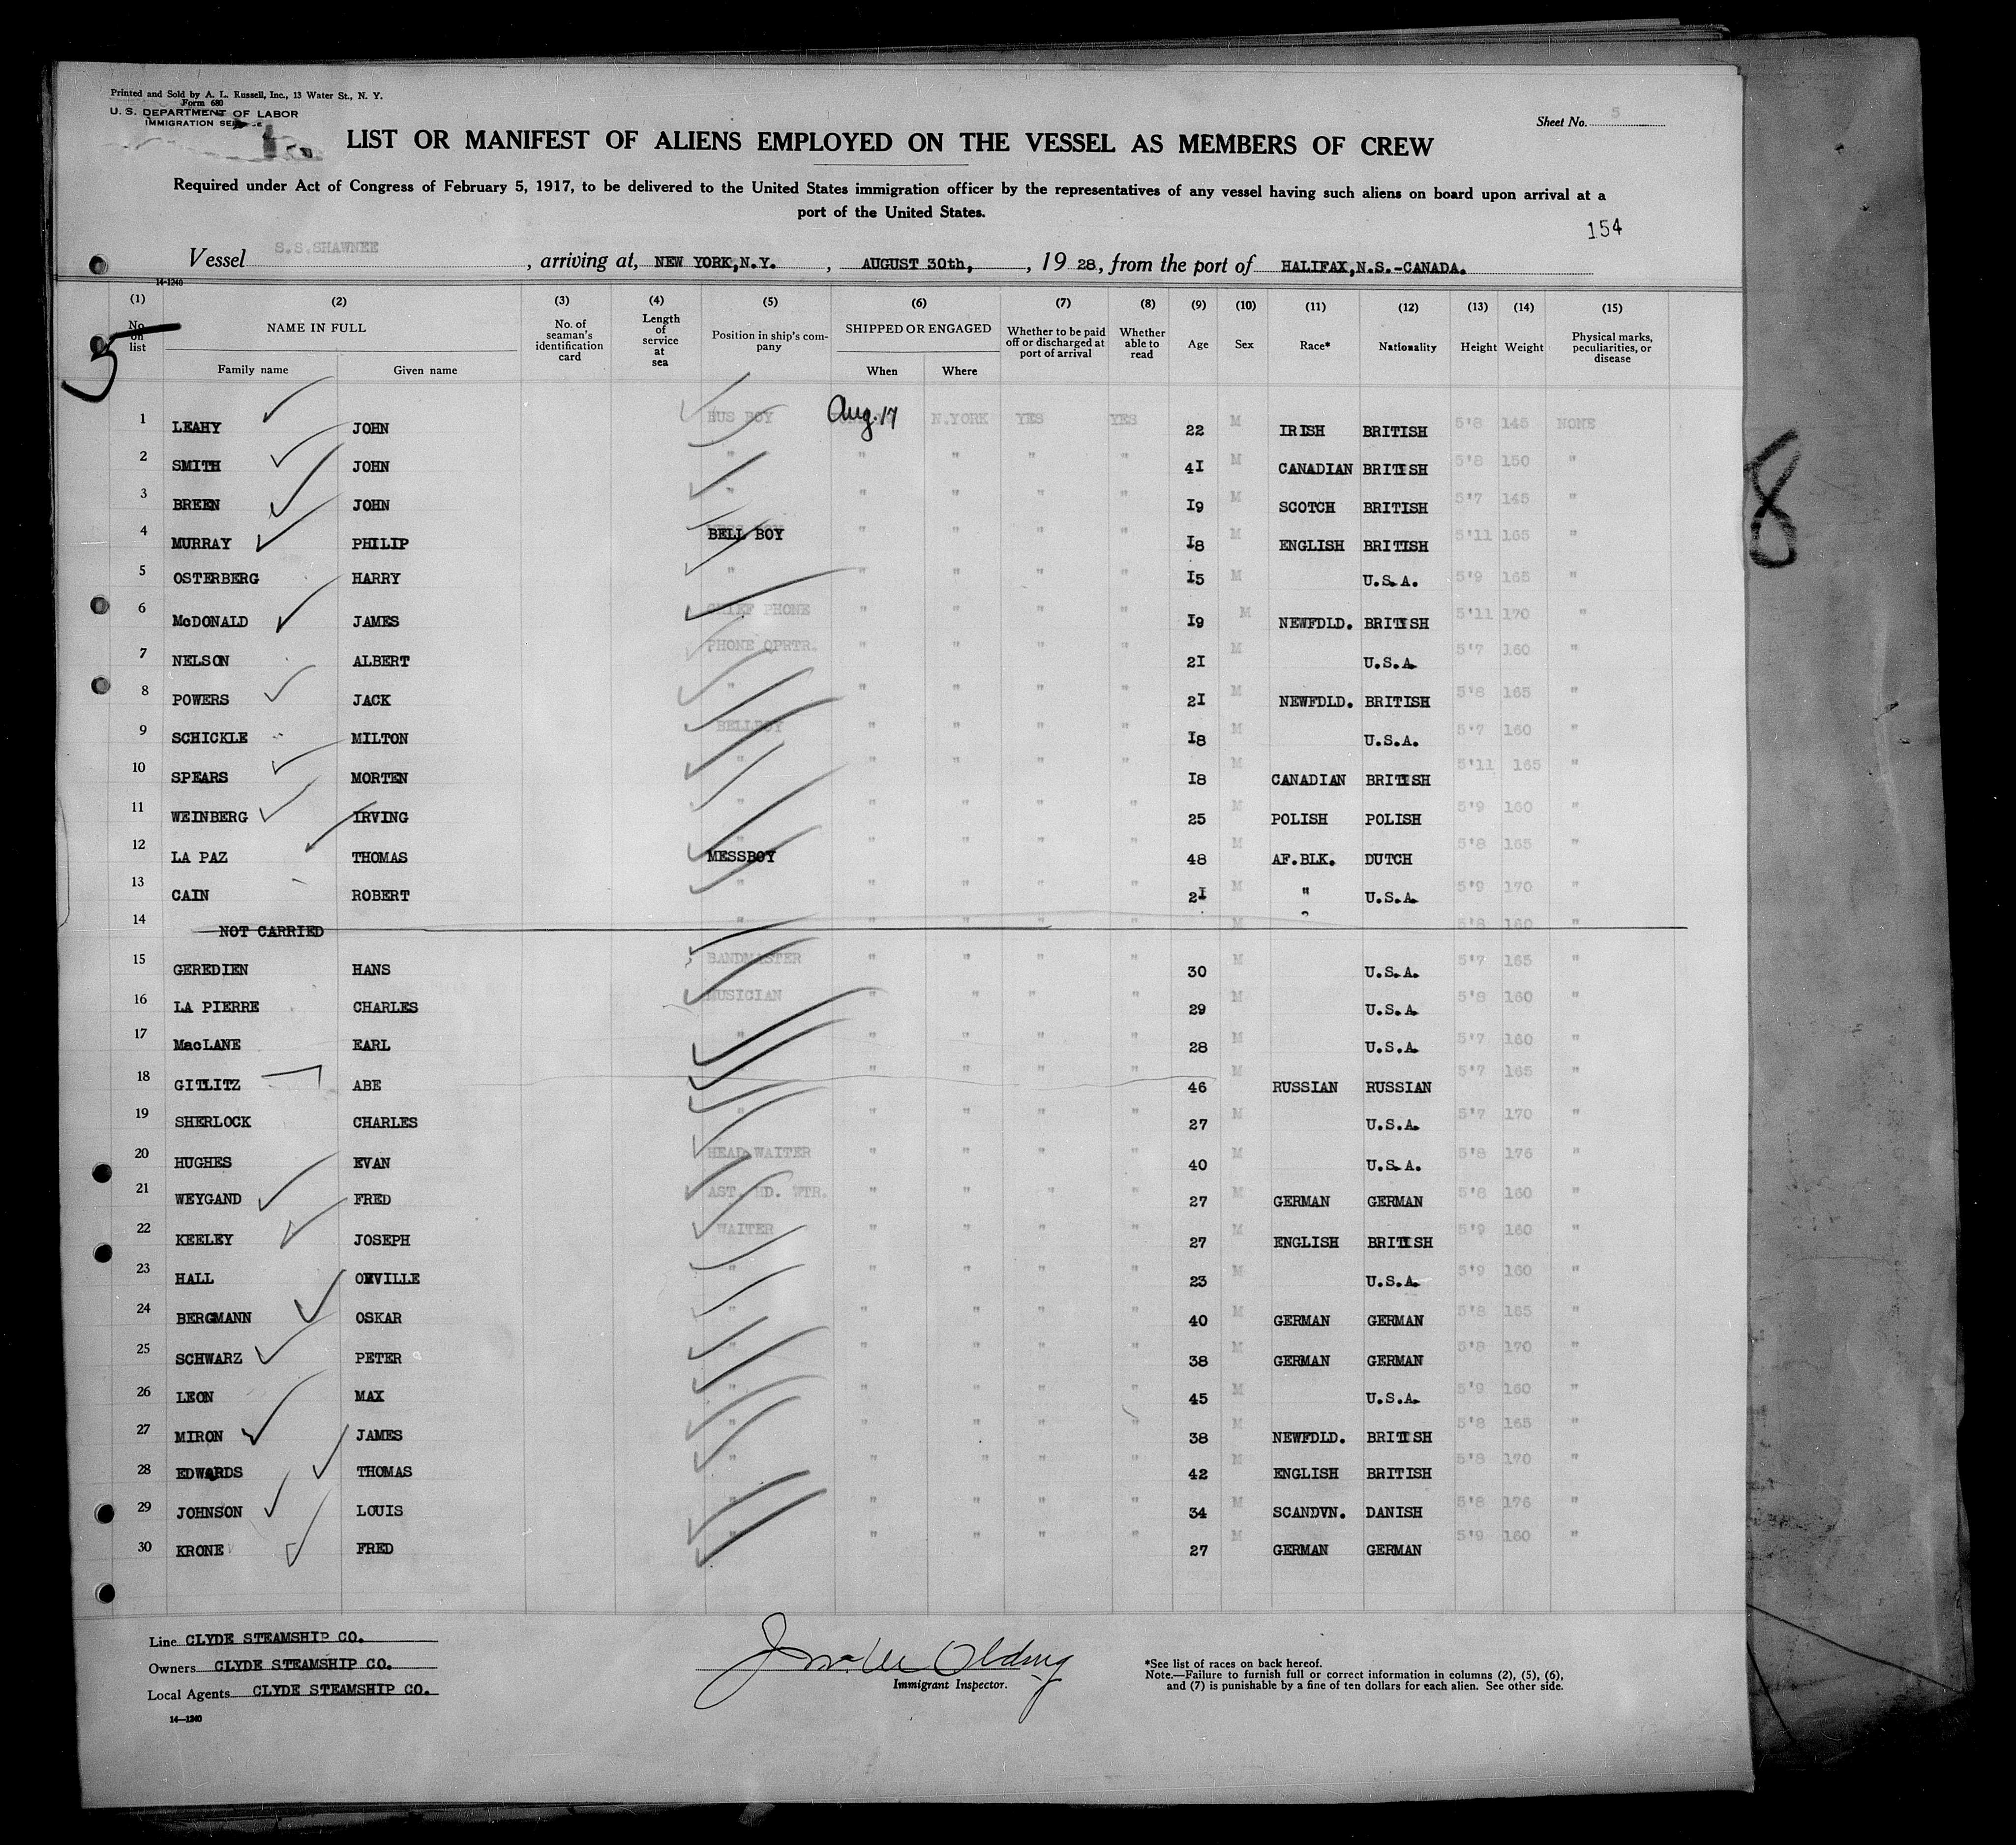 Printed and Sold by A. L. Russell, Inc., 13 Water St., N. Y.
Form 680
U. S. DEPARTMENT OF LABOR
IMMIGRATION
Sheet No. 5
LIST OR MANIFEST OF ALIENS EMPLOYED ON THE VESSEL AS MEMBERS OF CREW
Required under Act of Congress of February 5, 1917, to be delivered to the United States immigration officer by the representatives of any vessel having such aliens on board upon arrival at a
port of the United States.
154
Vessel S.S.SHAWNEE, arriving at, NEW YORK,N.Y., AUGUST 30th,, 19 28, from the port of HALIFAX,N.S.-CANADA.
14-1240
(1) (2) (3) (4) (5) (6) (7) (8) (9) (10) (11) (12) (13) (14) (15)
No. on list NAME IN FULL No. of seaman's identification card Length of service at sea Position in ship's company SHIPPED OR ENGAGED Whether to be paid off or discharged at port of arrival Whether able to read Age Sex Race* Nationality Height Weight Physical marks, peculiarities, or disease
Family name Given name When Where
5
8
1 LEAHY JOHN BUS BOY Aug. 17 N.YORK YES YES 22 M IRISH BRITISH 5'8 145 NONE
2 SMITH JOHN " " " " " 41 M CANADIAN BRITISH 5'8 150 "
3 BREEN JOHN " " " " " 19 M SCOTCH BRITISH 5'7 145 "
4 MURRAY PHILIP BELL BOY " " " " 18 M ENGLISH BRITISH 5'11 165 "
5 OSTERBERG HARRY " " " " " 15 M U.S.A. 5'9 165 "
6 McDONALD JAMES CHIEF PHONE " " " " 19 M NEWFDLD. BRITISH 5'11 170 "
7 NELSON ALBERT PHONE OPRTR. " " " " 21 M U.S.A. 5'7 160 "
8 POWERS JACK " " " " " 21 M NEWFDLD. BRITISH 5'8 165 "
9 SCHICKLE MILTON BELLBOY " " " " 18 M U.S.A. 5'7 160 "
10 SPEARS MORTEN " " " " " 18 M CANADIAN BRITISH 5'11 165 "
11 WEINBERG IRVING " " " " " 25 M POLISH POLISH 5'9 160 "
12 LA PAZ THOMAS MESSBOY " " " " 48 M AF.BLK. DUTCH 5'8 165 "
13 CAIN ROBERT " " " " " 21 M " U.S.A. 5'9 170 "
14 NOT CARRIED " " " " " M 5'8 160 "
15 GEREDIEN HANS BANDMASTER " " " " 30 M U.S.A. 5'7 165 "
16 LA PIERRE CHARLES MUSICIAN " " " " 29 M U.S.A. 5'8 160 "
17 MacLANE EARL " " " " " 28 M U.S.A. 5'7 160 "
18 GITLITZ ABE " " " " " 46 M RUSSIAN RUSSIAN 5'7 165 "
19 SHERLOCK CHARLES " " " " " 27 M U.S.A. 5'7 170 "
20 HUGHES EVAN HEAD WAITER " " " " 40 M U.S.A. 5'8 176 "
21 WEYGAND FRED AST. HD. WTR. " " " " 27 M GERMAN GERMAN 5'8 160 "
22 KEELEY JOSEPH WAITER " " " " 27 M ENGLISH BRITISH 5'9 160 "
23 HALL ORVILLE " " " " " 23 M U.S.A. 5'9 160 "
24 BERGMANN OSKAR " " " " " 40 M GERMAN GERMAN 5'8 165 "
25 SCHWARZ PETER " " " " " 38 M GERMAN GERMAN 5'8 170 "
26 LEON MAX " " " " " 45 M U.S.A. 5'9 160 "
27 MIRON JAMES " " " " " 38 M NEWFDLD. BRITISH 5'8 165 "
28 EDWARDS THOMAS " " " " " 42 M ENGLISH BRITISH 5'8 170 "
29 JOHNSON LOUIS " " " " " 34 M SCANDVN. DANISH 5'8 176 "
30 KRONE FRED " " " " " 27 M GERMAN GERMAN 5'9 160 "
Line CLYDE STEAMSHIP CO.
Owners CLYDE STEAMSHIP CO.
Local Agents CLYDE STEAMSHIP CO.
14—1240
Olding
Immigrant Inspector.
*See list of races on back hereof.
Note.—Failure to furnish full or correct information in columns (2), (5), (6),
and (7) is punishable by a fine of ten dollars for each alien. See other side.